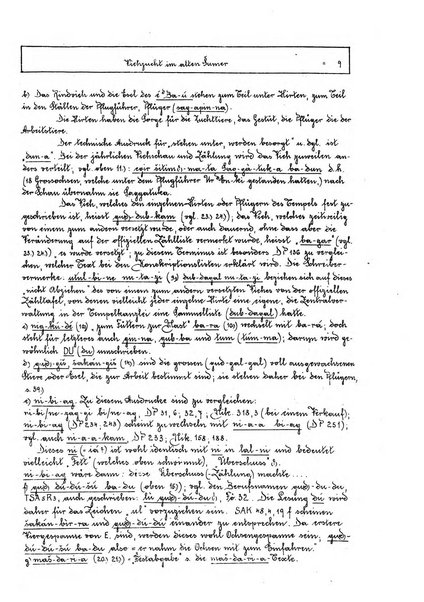 Viehzucht im alten Sumer - 9
b) Das Rindvieh und die Esel des Ba-ú stehen zum Teil unter Hirten, zum Teil
in den Ställen der Pflugführer, Pflüger (sag-apin-na).
Die Hirten haben die Sorge für die Zuchttiere, das Gestüt, die Pflüger die der
Arbeitstiere.
Der technische Ausdruck für "stehen unter, werden besorgt" u. dgl. ist
"dun-a". Bei der jährlichen Viehschau und Zählung wird das Vieh zuweilen an-
ders verteilt; vgl. oben 11.) : d.h.
(18 Grossochsen, welche bei dem Pflugführer gestanden hatten,) nach
der Schau übernahm sie Šaggaluka.
Das Vieh, welches den einzelnen Hirten oder Pflügern des Tempels fest zu-
geschrieben ist, heisst gud dub-kam (vgl. 23; 24); das Vieh, welches zeitweilig
von einem zum andern versetzt wurde, oder auch dauernd, ohne dass aber die
Veränderung auf der offiziellen Zählliste vermerkt wurde, heisst ba-gar (vgl.
23; 24), "es wurde versetzt"; zu diesem Terminus ist besonders DP 136 zu verglei-
chen, welcher Text bei den Konskriptionslisten erklärt wird. Die Schreiber-
vermerke: (dub dagal nu-ta-gi) beziehen sich auf dieses
"nicht Abziehen" des von einem zum andern versetzten Viehes von der offiziellen
Zähltafel, von denen vielleicht jeder einzelne Hirte eine eigene, die Zentralver-
waltung in der Tempelkanzlei eine Gesammtliste (dub-dagal) hatte.
c) nig-kú-dè (10) "zum Füttern zur Mast" ba-ra (10) wechselt mit ba-rá; doch
steht für letzteres auch gin-na, gub-ba und tum (túm-ma); darum wird ge-
wöhnlich DU (du) umschrieben.
d) (19) sind die grossen (gud-gal-gal) voll ausgewachsenen
Stiere oder Esel, die zur Arbeit bestimmt sind; sie stehen daher bei den Pflügern,
s. 39)
e) ni-bi-ag. Zu diesem Ausdrucke sind zu vergleichen:
DP 31, 6; 32, 7; Nik. 318, 3 (bei einem Verkauf);
ni-bi-ag (DP 234, 243) scheint zu wechseln mit ni-a-ag (DP 251);
vgl. auch ni-a-a-kam, DP 253; Nik. 158, 188.
Dieses ni (= iá!) ist wohl identisch mit ni in lal-ni und bedeutet
vielleicht "Fett" (welches oben schwimmt), Überschuss;
ni-bi-ag wäre dann: "der Überschuss (-Zählung) machte....
f) (oben 15)); vgl. den Berufsnamen
TSA 8 R3, auch geschrieben: Fö. 32. Die Lesung dú wird
daher für das Zeichen "ul" vorzuziehen sein. SAK 48, 4, 19 f scheinen
und einander zu entsprechen. Da erstere
Viergespanne von E. sind, werden dieses wohl Ochsengespanne sein,
also = er nahm die Ochsen mit zum Einfahren."
g) maš-da-ri-a (20; 21)) = "Festabgabe" s. die maš-da-ri-a-Texte.